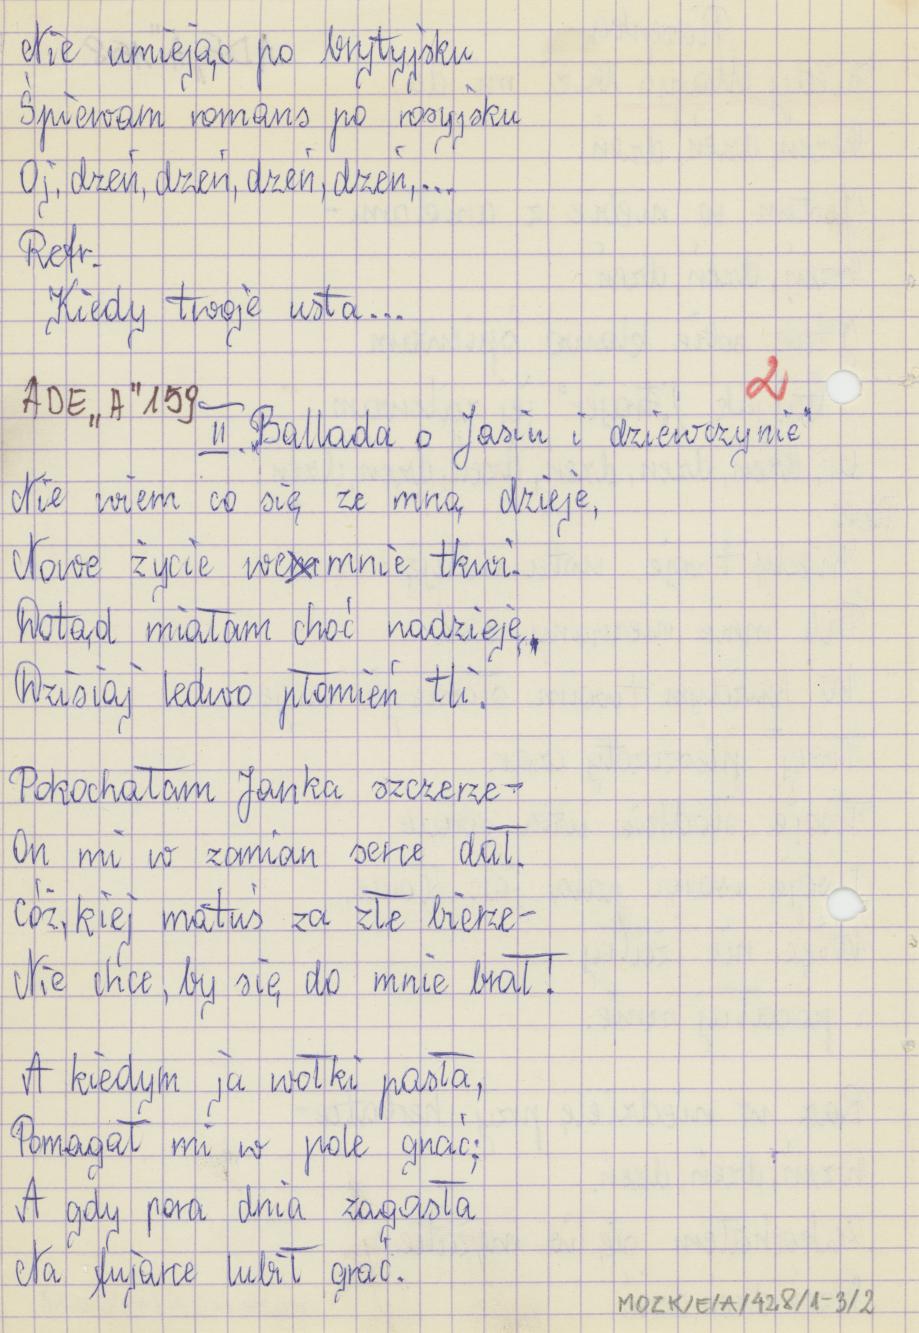 Nie umiejąc po brytyjsku
Śpiewam romans po rosyjsku
Oj, dzeń, dzeń, dzeń, dzeń,...
Refr.
Kiedy twoje usta...
2
ADE„A"159
II. „Ballada o Jasiu i dziewczynie"
Nie wiem co się ze mną dzieje,
Nowe życie we mnie tkwi.
Dotąd miałam choć nadzieję,
Dzisiaj ledwo płomień tli.
Pokochałam Janka szczerze-
On mi w zamian serce dał.
Cóż, kiej matuś za złe bierze-
Nie chce, by się do mnie brał!
A kiedym ja wołki pasła,
Pomagał mi w pole gnać;
A gdy pora dnia zagasła
Na fujarce lubił grać.
MOZK/E/A/428/1-3/2